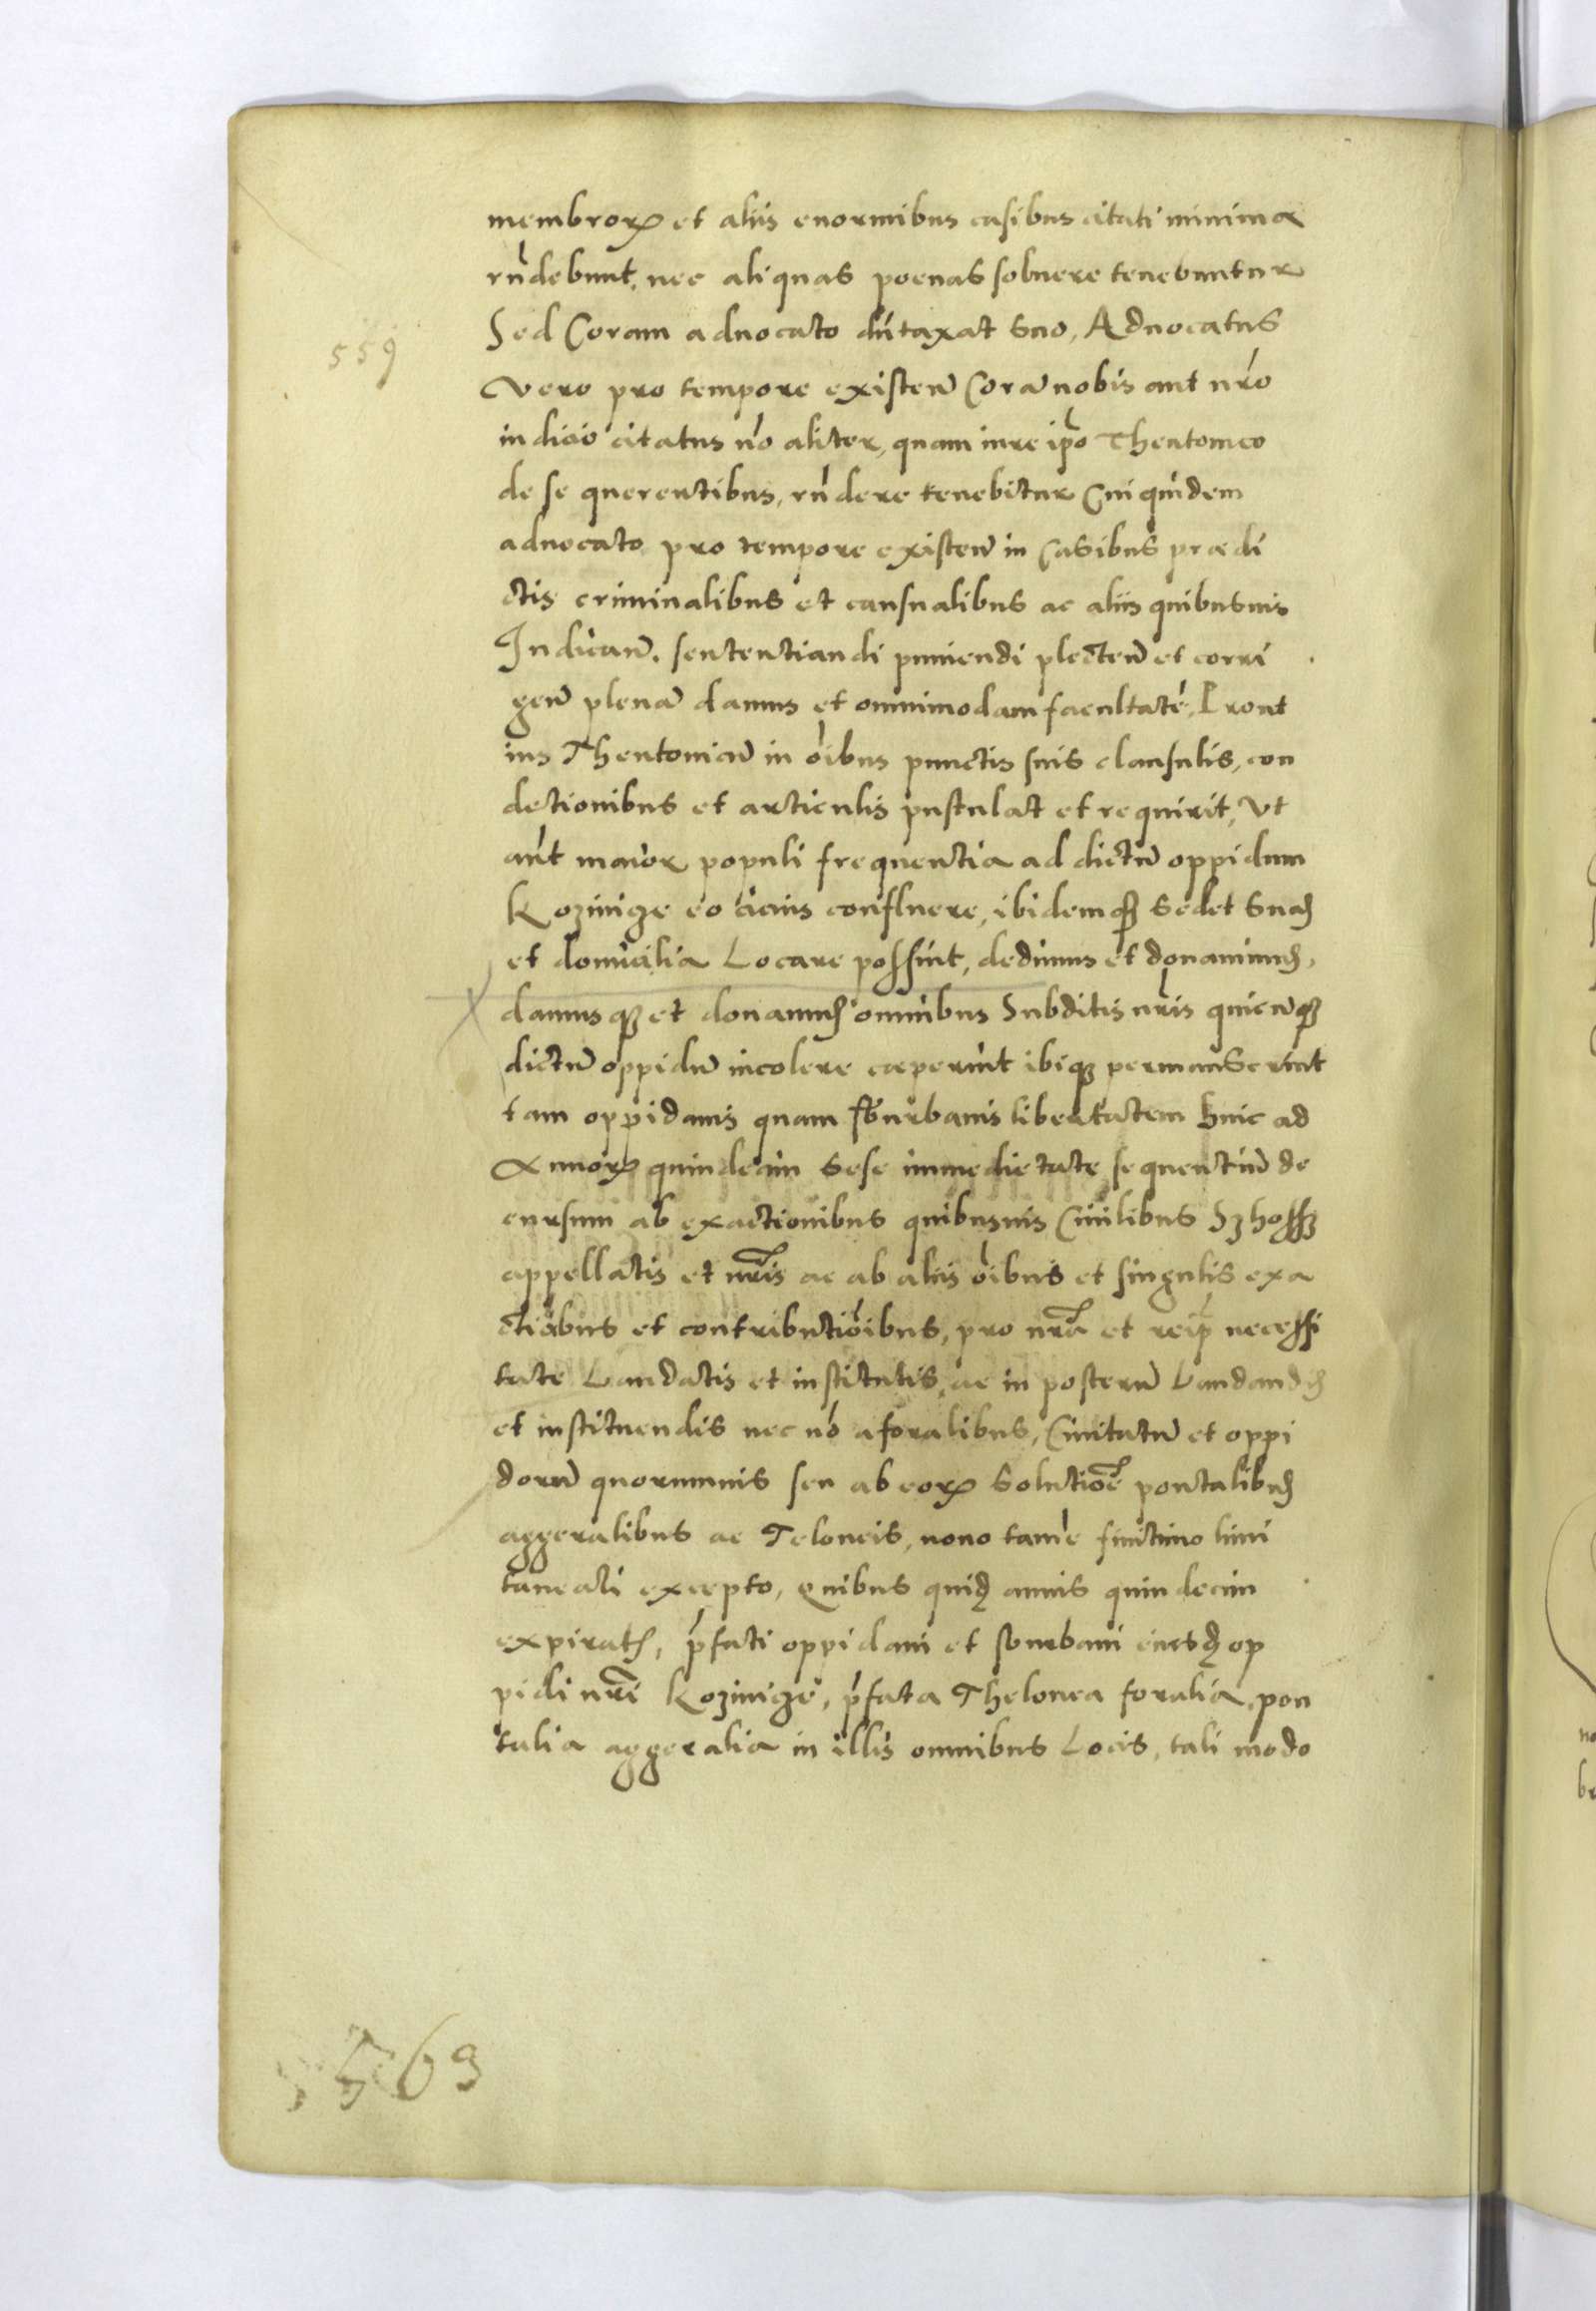 membrorꝝ et aliis enormibus casibus citati minima
rñdebunt, nec aliquas poenas soluere tenebuntur
Sed Coram aduocato dũtaxat suo, Aduocatus
559
vero pro tempore existeñ Corã nobis aut nr̃o
indicio citatus nõ aliter, quam iure ip̃o Theutonico
de se querentibus, rñdere tenebitur Cui quidem
aduocato pro tempore existeñ in Casibus prædi
ctis criminalibus et causualibus ac aliis quibusuis
Iudicañ. sententiandi puniendi plecteñ et corri
geñ plenã damus et omnimodam facultatẽ, Prout
ius Theutonicũ in oĩbus punctis suis clausulis, con
dectionibus et articulis pustulat et requirit, Vt
aũt maior populi frequentia ad dictũ oppidum
Kozinigze eo cicius confluere, ibidemqꝫ sedet suas
et domicilia Locare possint, dedimus et donauimus,
damusqꝫ et donamus omnibus Subditis nr̃is quicũqꝫ
dictũ oppidũ incolere cæperint ibiqꝫ permanserint
tam oppidanis quam sburbanis libertatem huic ad
Annorꝝ quindecim sese immedietate sequentiũ de
cursum ab exactionibus quibusuis Ciuilibus Szhossz
appellatis et nr̃is ac ab aliis oĩbus et singulis exa
ctiõbus et contributiõibus, pro nr̃a et reip̃ necessi
tate Laudatis et institutis, ac in posterũ Laudandis
et instituendis nec nõ a foralibus, Ciuitatũ et oppi
dorũ quorumuis seu ab eorꝝ solutiõe pontalibus
aggeralibus ac Teloneis, nouo tamẽ finitimo limi
taneali excepto, Quibus quidẽ annis quindecim
expiratis, p̃fati oppidani et suburbani eiusdẽ op
pidi nr̃i Kozinigze, p̃fata Thelonea foralia, pon
talia aggeralia in illis omnibus Locis, tali modo
5569